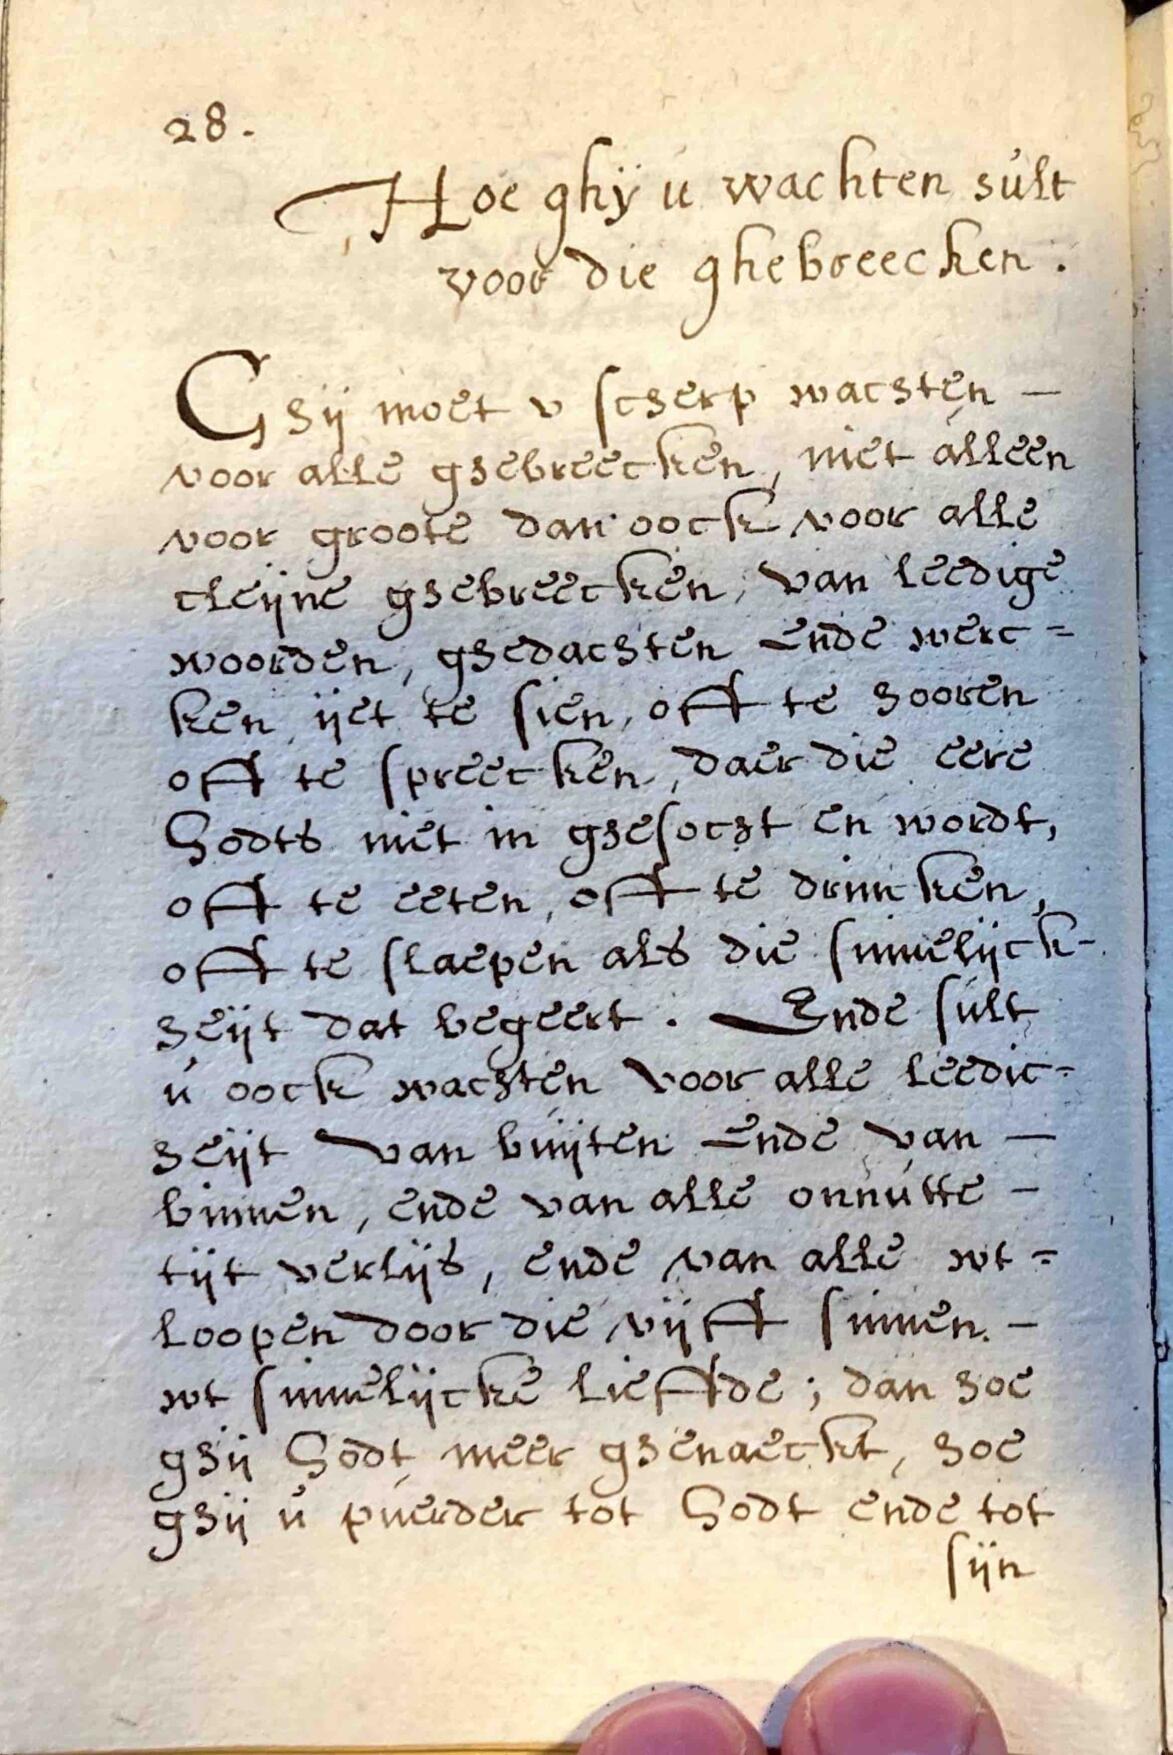 28.
Hoe ghÿ ú wachten súlt
voor die ghebreecken.
Ghij moet v scherp wachten —
voor alle ghebreecken, niet alleen
voor groote dan oock voor alle
cleijne ghebreecken, van leedige
woorden, ghedachten ende werc=
ken, ijet te sien, offt te hooren
offt te spreecken, daer die eere
Godts niet in ghesocht en wordt,
offt te eeten, offt te drincken,
offt te slaepen als die sinnelijck-
heijt dat begeert. Ende súlt
ú oock wachten voor alle leedic=
heijt van buijten ende van —
binnen, ende van alle onnútte —
tijt verlijs, ende van alle wt=
loopen door die vijfft sinnen. —
wt sinnelijcke lieffde; dan hoe
ghij Godt meer ghenaeckt, hoe
ghij ú puerder tot Godt ende tot
sijn